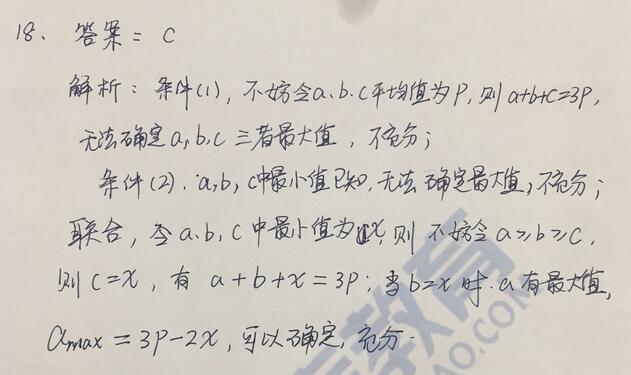 18、答案= C
解析：条件(1)，不妨令a、b、c平均值为P，则a+b+c=3P，
无法确定a,b,c三者最大值，不充分；
条件(2)．a,b,c中最小值已知，无法确定最大值，不充分；
联合，令a、b、c中最小值为x，则不妨令a≥b≥c，
则c=x，有 a+b+x=3P；当b=x时．a有最大值，
amax = 3P-2x，可以确定，充分．
教育
AO.COM